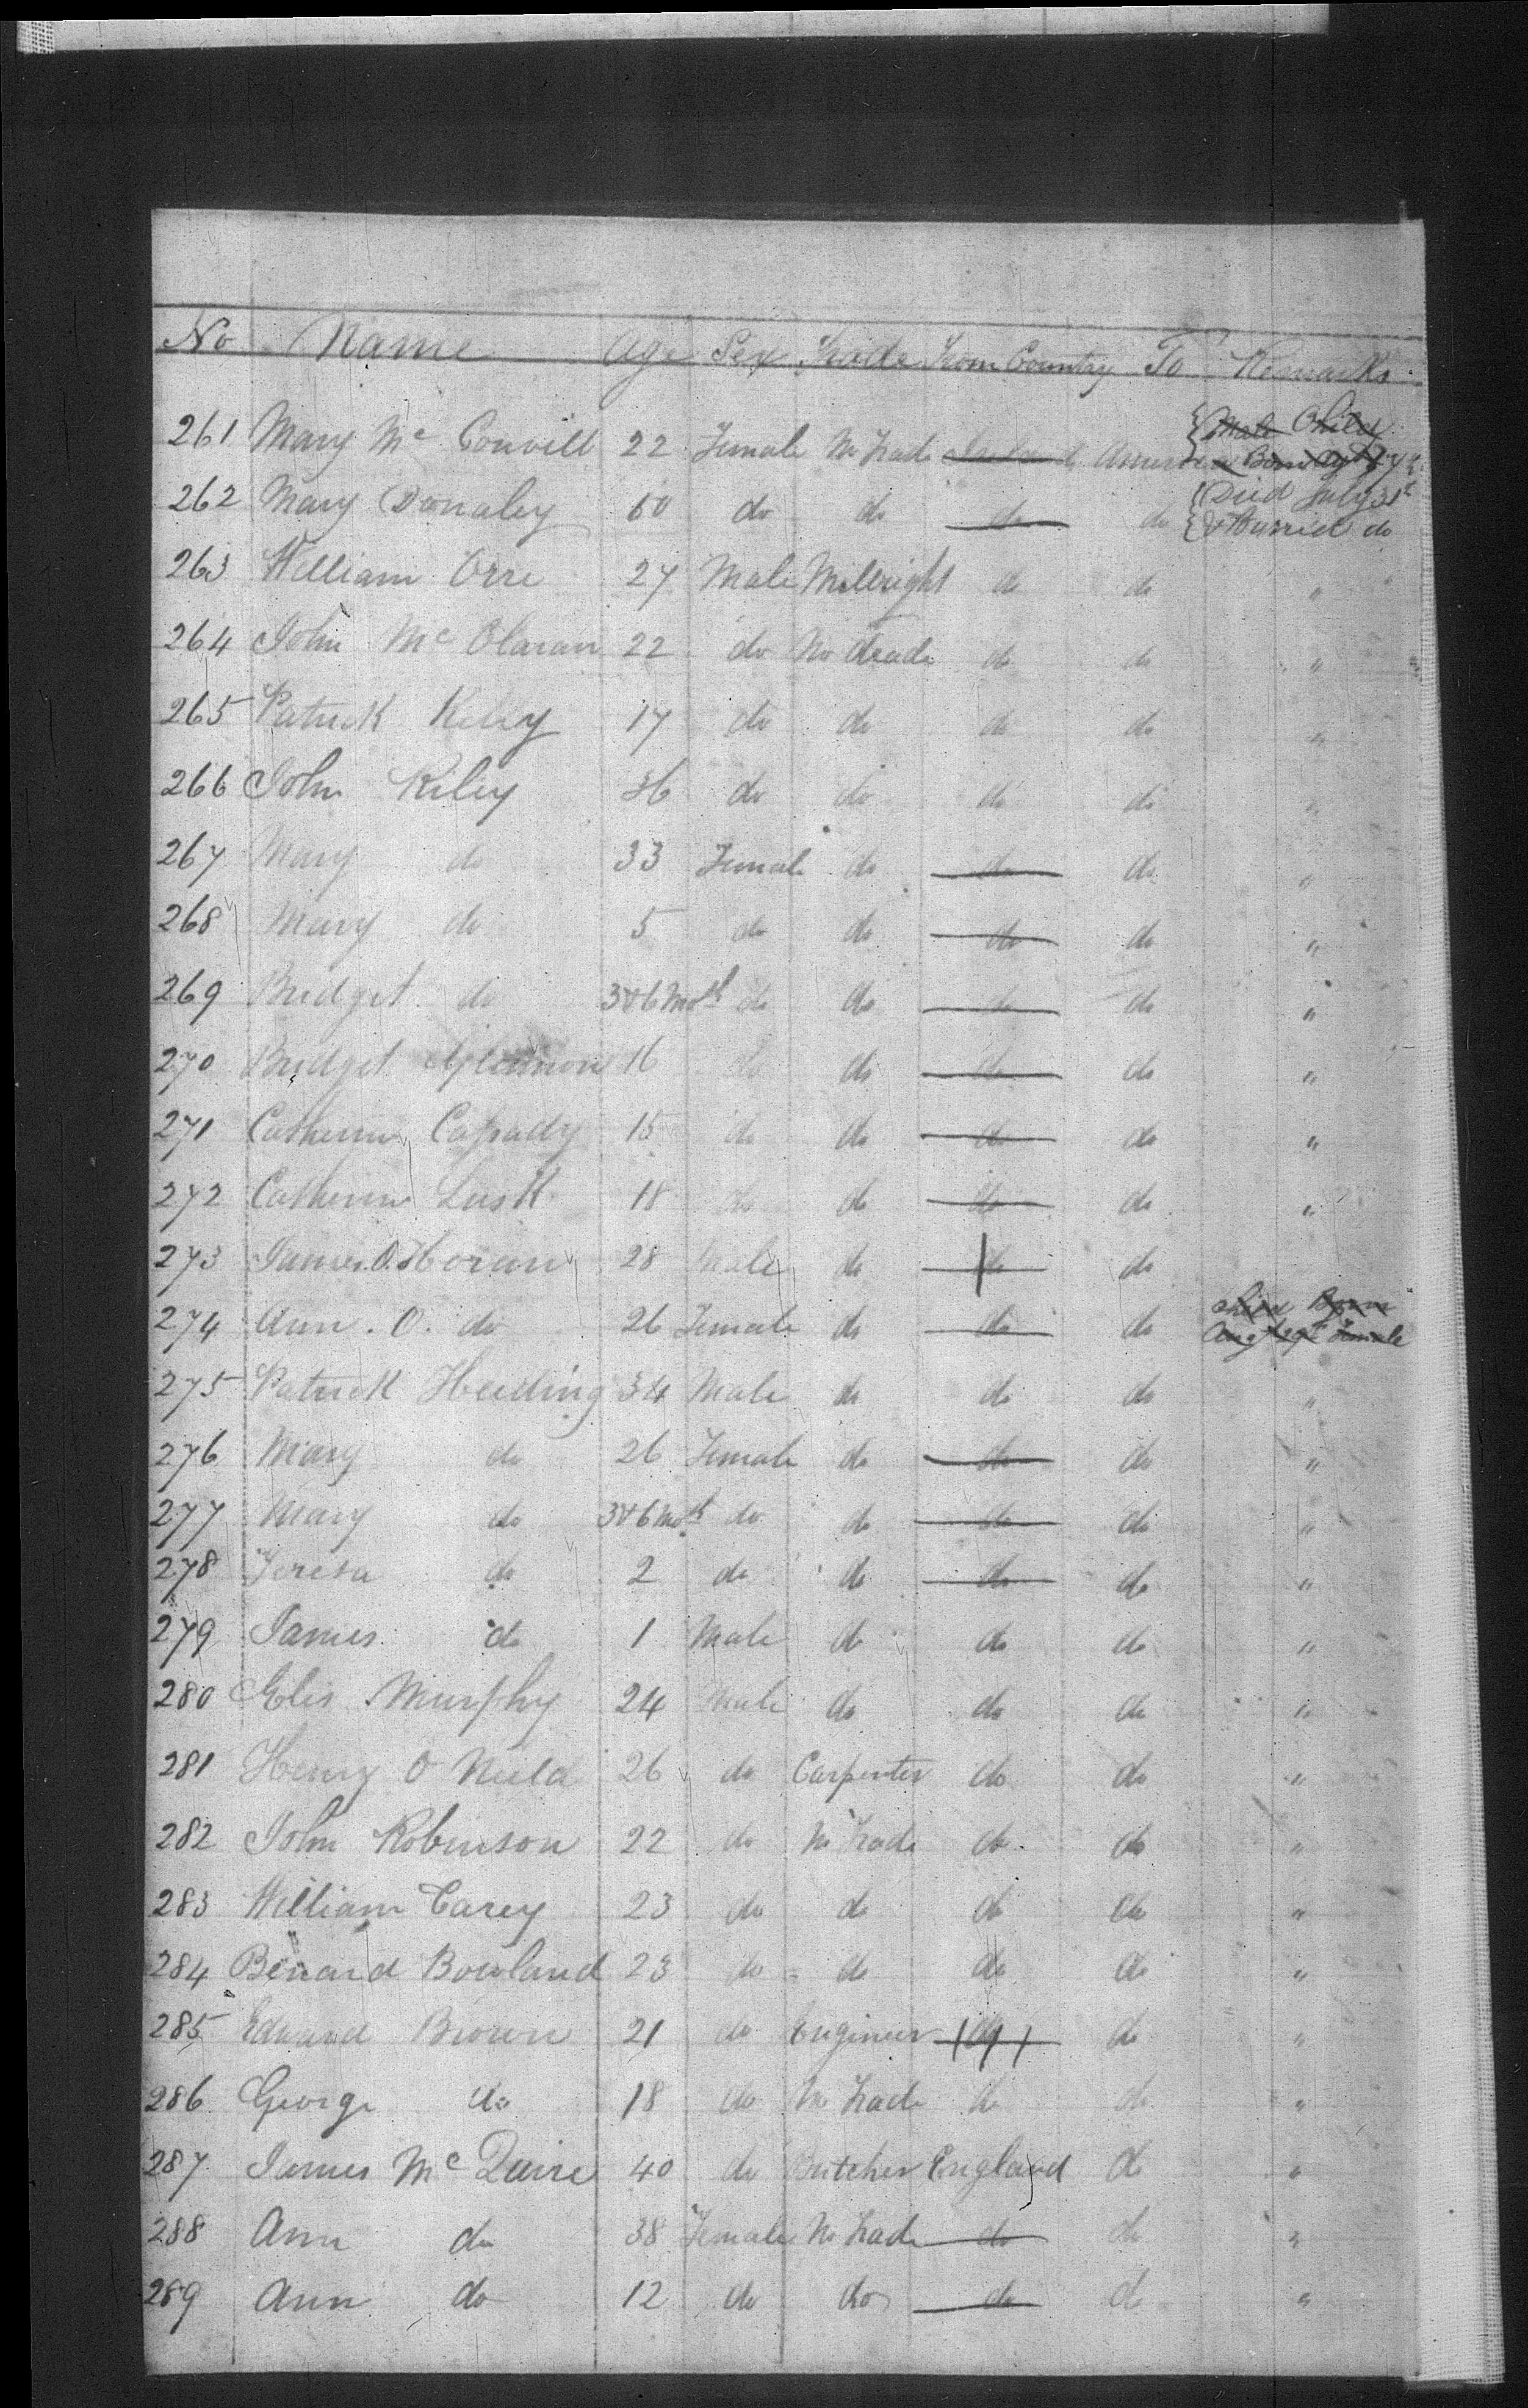 No Name Age Sex Trade From Country To Remarks
261 Mary Mc Convill 22 Female No Trade Ireland America { Male Child Born Augt
262 Mary Donaley 60 do do do do { Died July 31st & Burried do
263 William Orre 27 Male Millright do do "
264 John Mc Claran 22 do No trade do do "
265 Patrick Riley 17 do do do do "
266 John Riley 36 do do do do "
267 Mary do 33 Female do do do "
268 Mary do 5 do do do do "
269 Bridget do 3 & 6 Moth do do do do "
270 Bridget 16 do do do do "
271 Catherine Cassady 15 do do do do "
272 Catherine Lusk 18 do do do do "
273 James O. Horan 28 Male do do do
274 Ann . O. do 26 Female do do do Child Born Augt Female
275 Patrick Heiding 34 Male do do do "
276 Mary do 26 Female do do do "
277 Mary do 3 & 6 Moth do do do do "
278 Teresa do 2 do do do do "
279 James do 1 Male do do do "
280 Elis Murphy 24 Male do do do "
281 Henry O Neild 26 do Carpenter do do "
282 John Robinson 22 do No Trade do do "
283 William Carey 23 do do do do "
284 Benard Bowland 23 do do do do "
285 Edward Brown 21 do Engineer do do "
286 George do 18 do No Trade do do "
287 James Mc Quire 40 do Butcher England do "
288 Ann do 38 Female No Trade do do "
289 Ann do 12 do do do do "